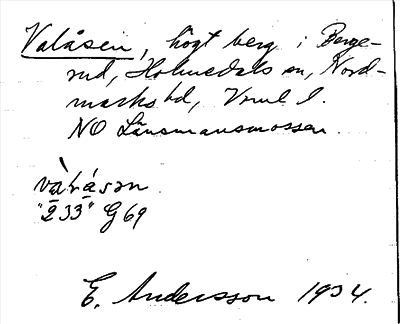 Valåsen, högt berg i Berge-
rud, Holmedals sn, Nord-
marks hd, Vrml l.
NO Länsmansmossen.
vàlåsən
"2 33" G69
E. Andersson 1934.